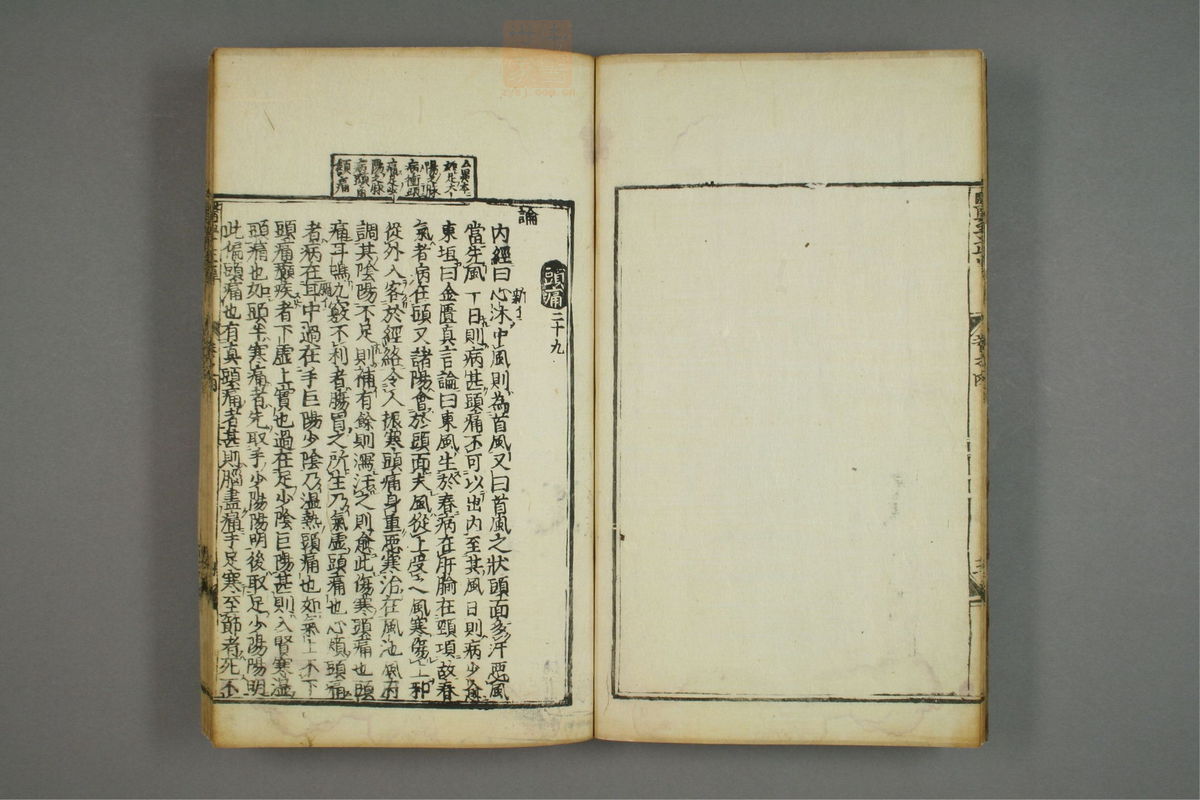 頭痛 二十九
論
內經曰新沐中風則為首風又曰首風之狀頭面多汗惡風
當先風一日則病甚頭痛不可以出內至其風日則病少愈
東垣曰金匱真言論曰東風生於春病在肝腧在頸項故春
氣者病在頭又諸陽會於頭面夫風從上受之風寒傷上邪
從外入客於經絡令人振寒頭痛身重惡寒治在風池風府
調其陰陽不足則補有餘則瀉汗之則愈此傷寒頭痛也頭
痛耳鳴九竅不利者腸胃之所生乃氣虛頭痛也心煩頭痛
者病在耳中過在手巨陽少陰乃濕熱頭痛也如氣上不下
頭痛癲疾者下虛上實也過在足少陰巨陽甚則入腎寒濕
頭痛也如頭半寒痛者先取手少陽陽明後取足少陽陽明
此偏頭痛也有真頭痛者甚則腦盡痛手足寒至節者死不